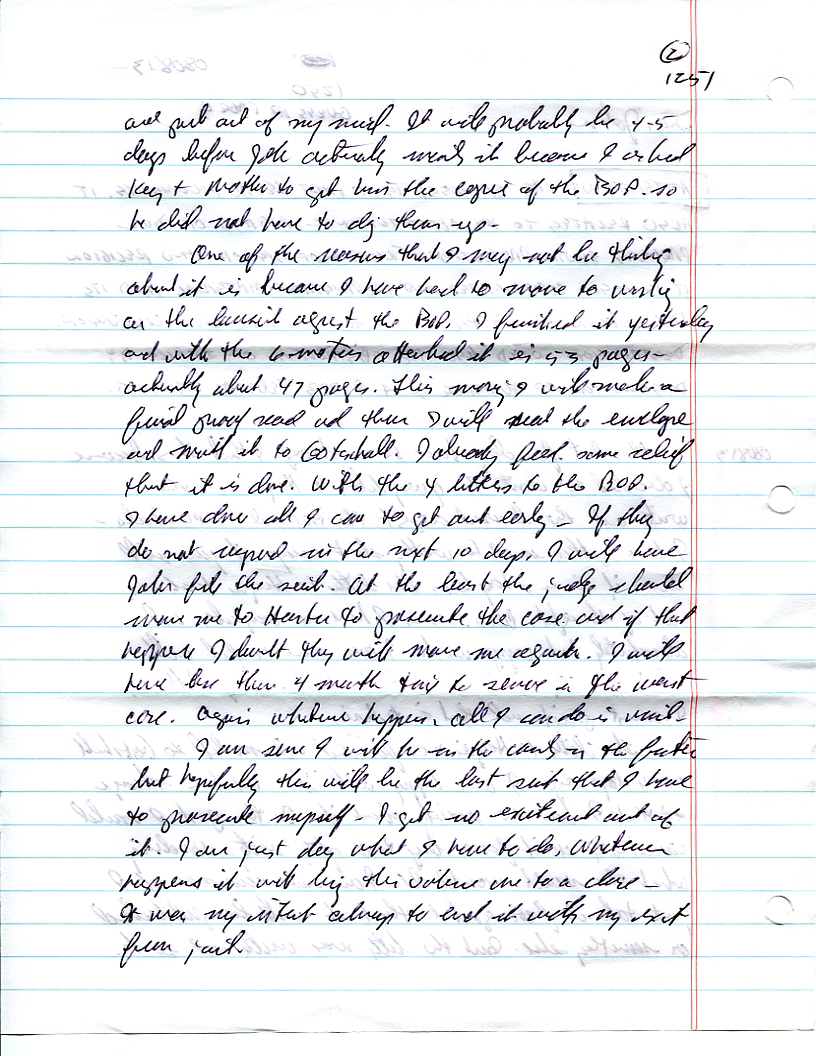 2
1251
and put out of my mind. It will probably be 4-5
days before Jake actually mails it because I asked
Kay + Mother to get him the copies of the BOP. so
he did not have to dig them up-
One of the reasons that I may not be thinking
about it is because I have had to move to working
on the lawsuit against the BOP. I finished it yesterday
and with the 6 motions attached it is 53 pages-
actually about 47 pages. This morning I will make a
final proof read and then I will seal the envelope
and mail it to Gotschall. I already feel some relief
that it is done. With the 4 letters to the BOP.
I have done all I can to get out early - If they
do not respond in the next 10 days, I will have
Jake file the suit. At the least the judge should
move me to to prosecute the case and if that
happens I doubt they will move me again. I will
have less than 4 months to serve in the worst
case. Again whatever happens all I can do is wait-
I am sure I will be in the courts in the future
but hopefully this will be the last suit that I have
to prosecute myself - I get no excitement out of
it. I am just doing what I have to do, whatever
happens it will bring this volume to a close -
It was my intent always to end it with my exit
from jail.